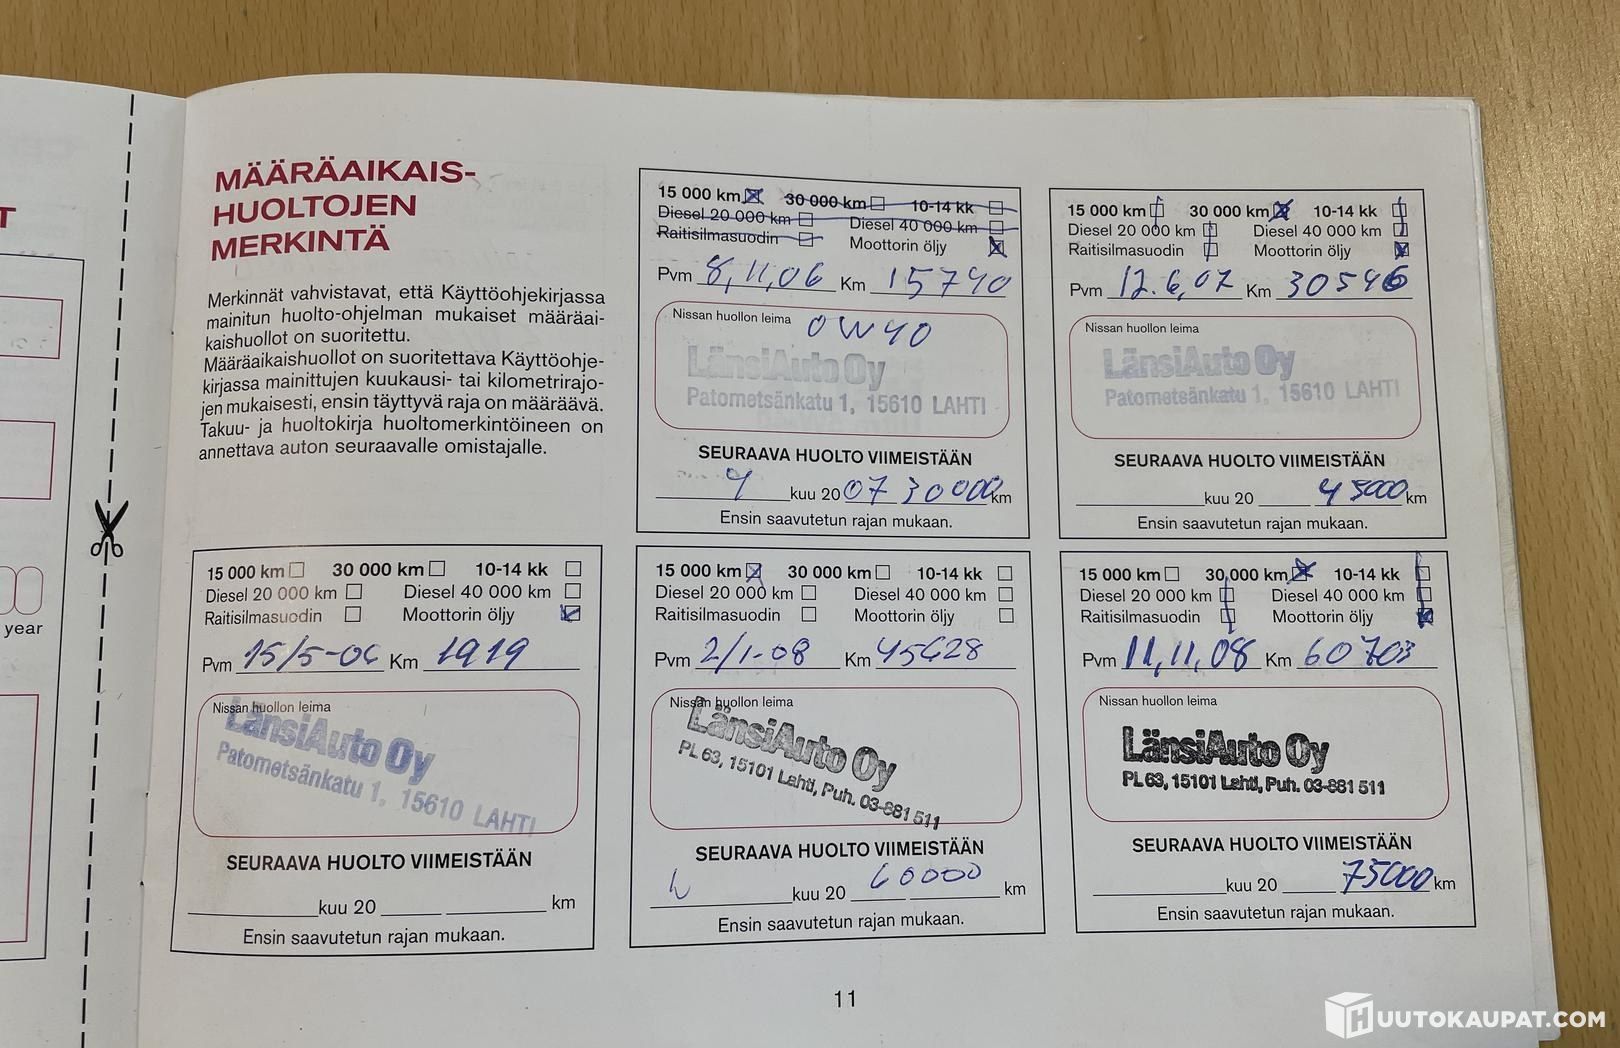 T
year
MÄÄRÄAIKAIS-
HUOLTOJEN
MERKINTÄ
Merkinnät vahvistavat, että Käyttöohjekirjassa
mainitun huolto-ohjelman mukaiset määräai-
kaishuollot on suoritettu.
Määräaikaishuollot on suoritettava Käyttöohje-
kirjassa mainittujen kuukausi- tai kilometrirajo-
jen mukaisesti, ensin täyttyvä raja on määräävä.
Takuu- ja huoltokirja huoltomerkintöineen on
annettava auton seuraavalle omistajalle.
15 000 km 30 000 km 10-14 kk
Diesel 20 000 km Diesel 40 000 km
Raitisilmasuodin Moottorin öljy
Pvm 8,11,06 Km 15740
Nissan huollon leima 0W40
LänsiAuto Oy
Patometsänkatu 1, 15610 LAHTI
SEURAAVA HUOLTO VIIMEISTÄÄN
4 kuu 2007 30000 km
Ensin saavutetun rajan mukaan.
15 000 km 30 000 km 10-14 kk
Diesel 20 000 km Diesel 40 000 km
Raitisilmasuodin Moottorin öljy
Pvm 12.6,07 Km 30546
Nissan huollon leima
LänsiAuto Oy
Patometsänkatu 1, 15610 LAHTI
SEURAAVA HUOLTO VIIMEISTÄÄN
kuu 20 45000 km
Ensin saavutetun rajan mukaan.
15 000 km 30 000 km 10-14 kk
Diesel 20 000 km Diesel 40 000 km
Raitisilmasuodin Moottorin öljy
Pvm 15/5-06 Km 1919
Nissan huollon leima
LänsiAuto Oy
Patometsänkatu 1, 15610 LAHTI
SEURAAVA HUOLTO VIIMEISTÄÄN
kuu 20 km
Ensin saavutetun rajan mukaan.
15 000 km 30 000 km 10-14 kk
Diesel 20 000 km Diesel 40 000 km
Raitisilmasuodin Moottorin öljy
Pvm 2/1-08 Km 45628
Nissan huollon leima
LänsiAuto Oy
PL 63, 15101 Lahti, Puh. 03-881 511
SEURAAVA HUOLTO VIIMEISTÄÄN
kuu 20 60000 km
Ensin saavutetun rajan mukaan.
15 000 km 30 000 km 10-14 kk
Diesel 20 000 km Diesel 40 000 km
Raitisilmasuodin Moottorin öljy
Pvm 11,11,08 Km 60703
Nissan huollon leima
LänsiAuto Oy
PL 63, 15101 Lahti, Puh. 03-881 511
SEURAAVA HUOLTO VIIMEISTÄÄN
kuu 20 75000 km
Ensin saavutetun rajan mukaan.
11
HUUTOKAUPAT.COM